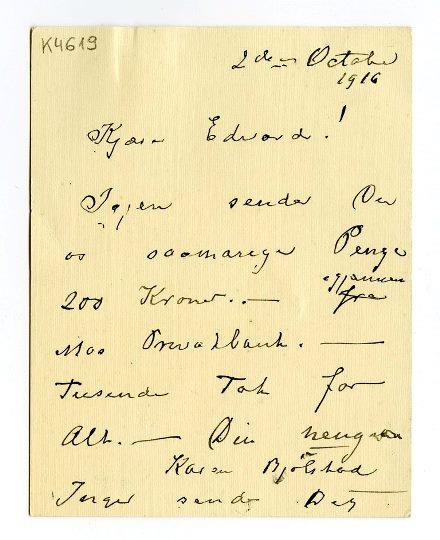 K4619
2den October
1916
Kjære Edvard!
Igjen sender Du
os saamange Penge
200 Kroner. — gjennem
fra
Mos Privatbank. —
Tusende Tak for
Alt. — Din hengivne
Karen Bjölstad
Inger sender Dig